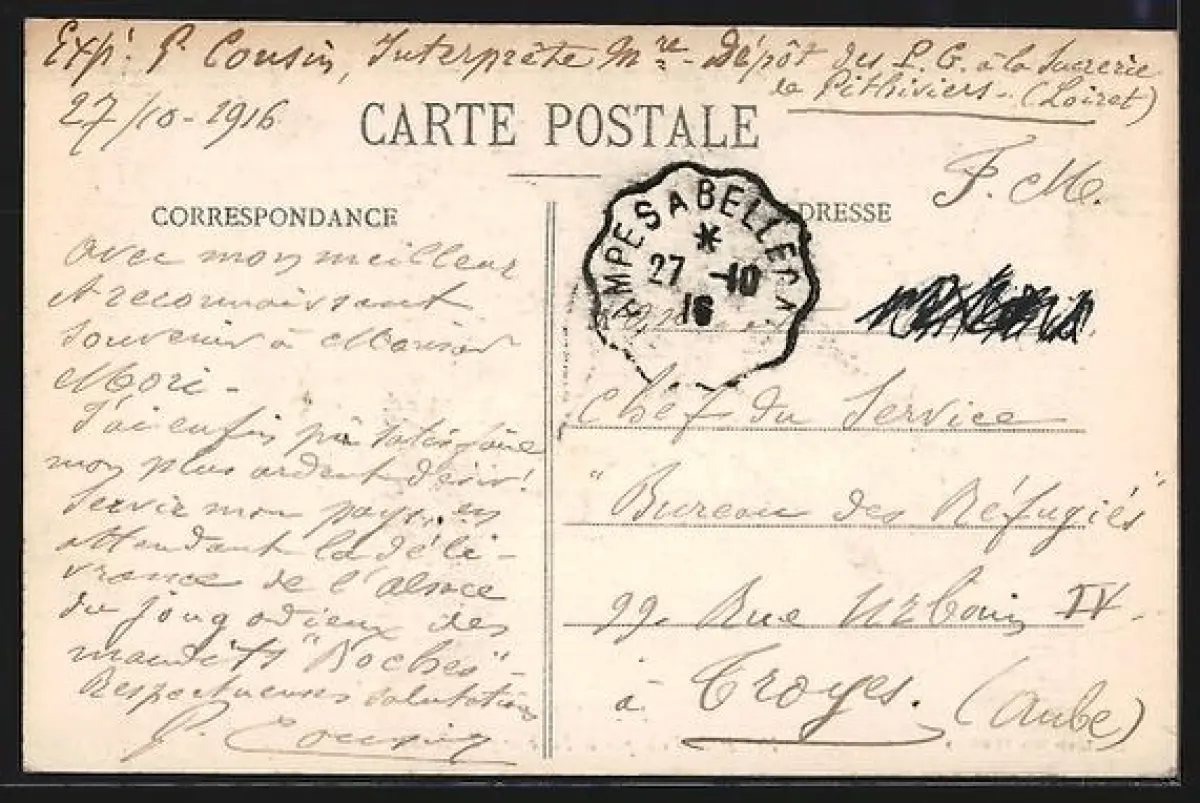 Exp: P. Cousin, Interprète Mre - Dépôt des P. G. à la Sucrerie
de Pithiviers - (Loiret)
27/10-1916
CARTE POSTALE
F. M.
CORRESPONDANCE
ADRESSE
AMPES A BELLEGA
27 -10
16
avec mon meilleur
et reconnaissant
souvenir à Monsieur
Mori -
J'ai enfin pu satisfaire
mon plus ardent désir!
Servir mon pays, en
attendant la déli-
vrance de l'alsace
du joug odieux des
maudits "Boches" -
Respectueuses salutations
P. Cousin
Chef du Service
"Bureau des Réfugiés"
99. Rue Urbain IV -
à Troyes. (Aube)